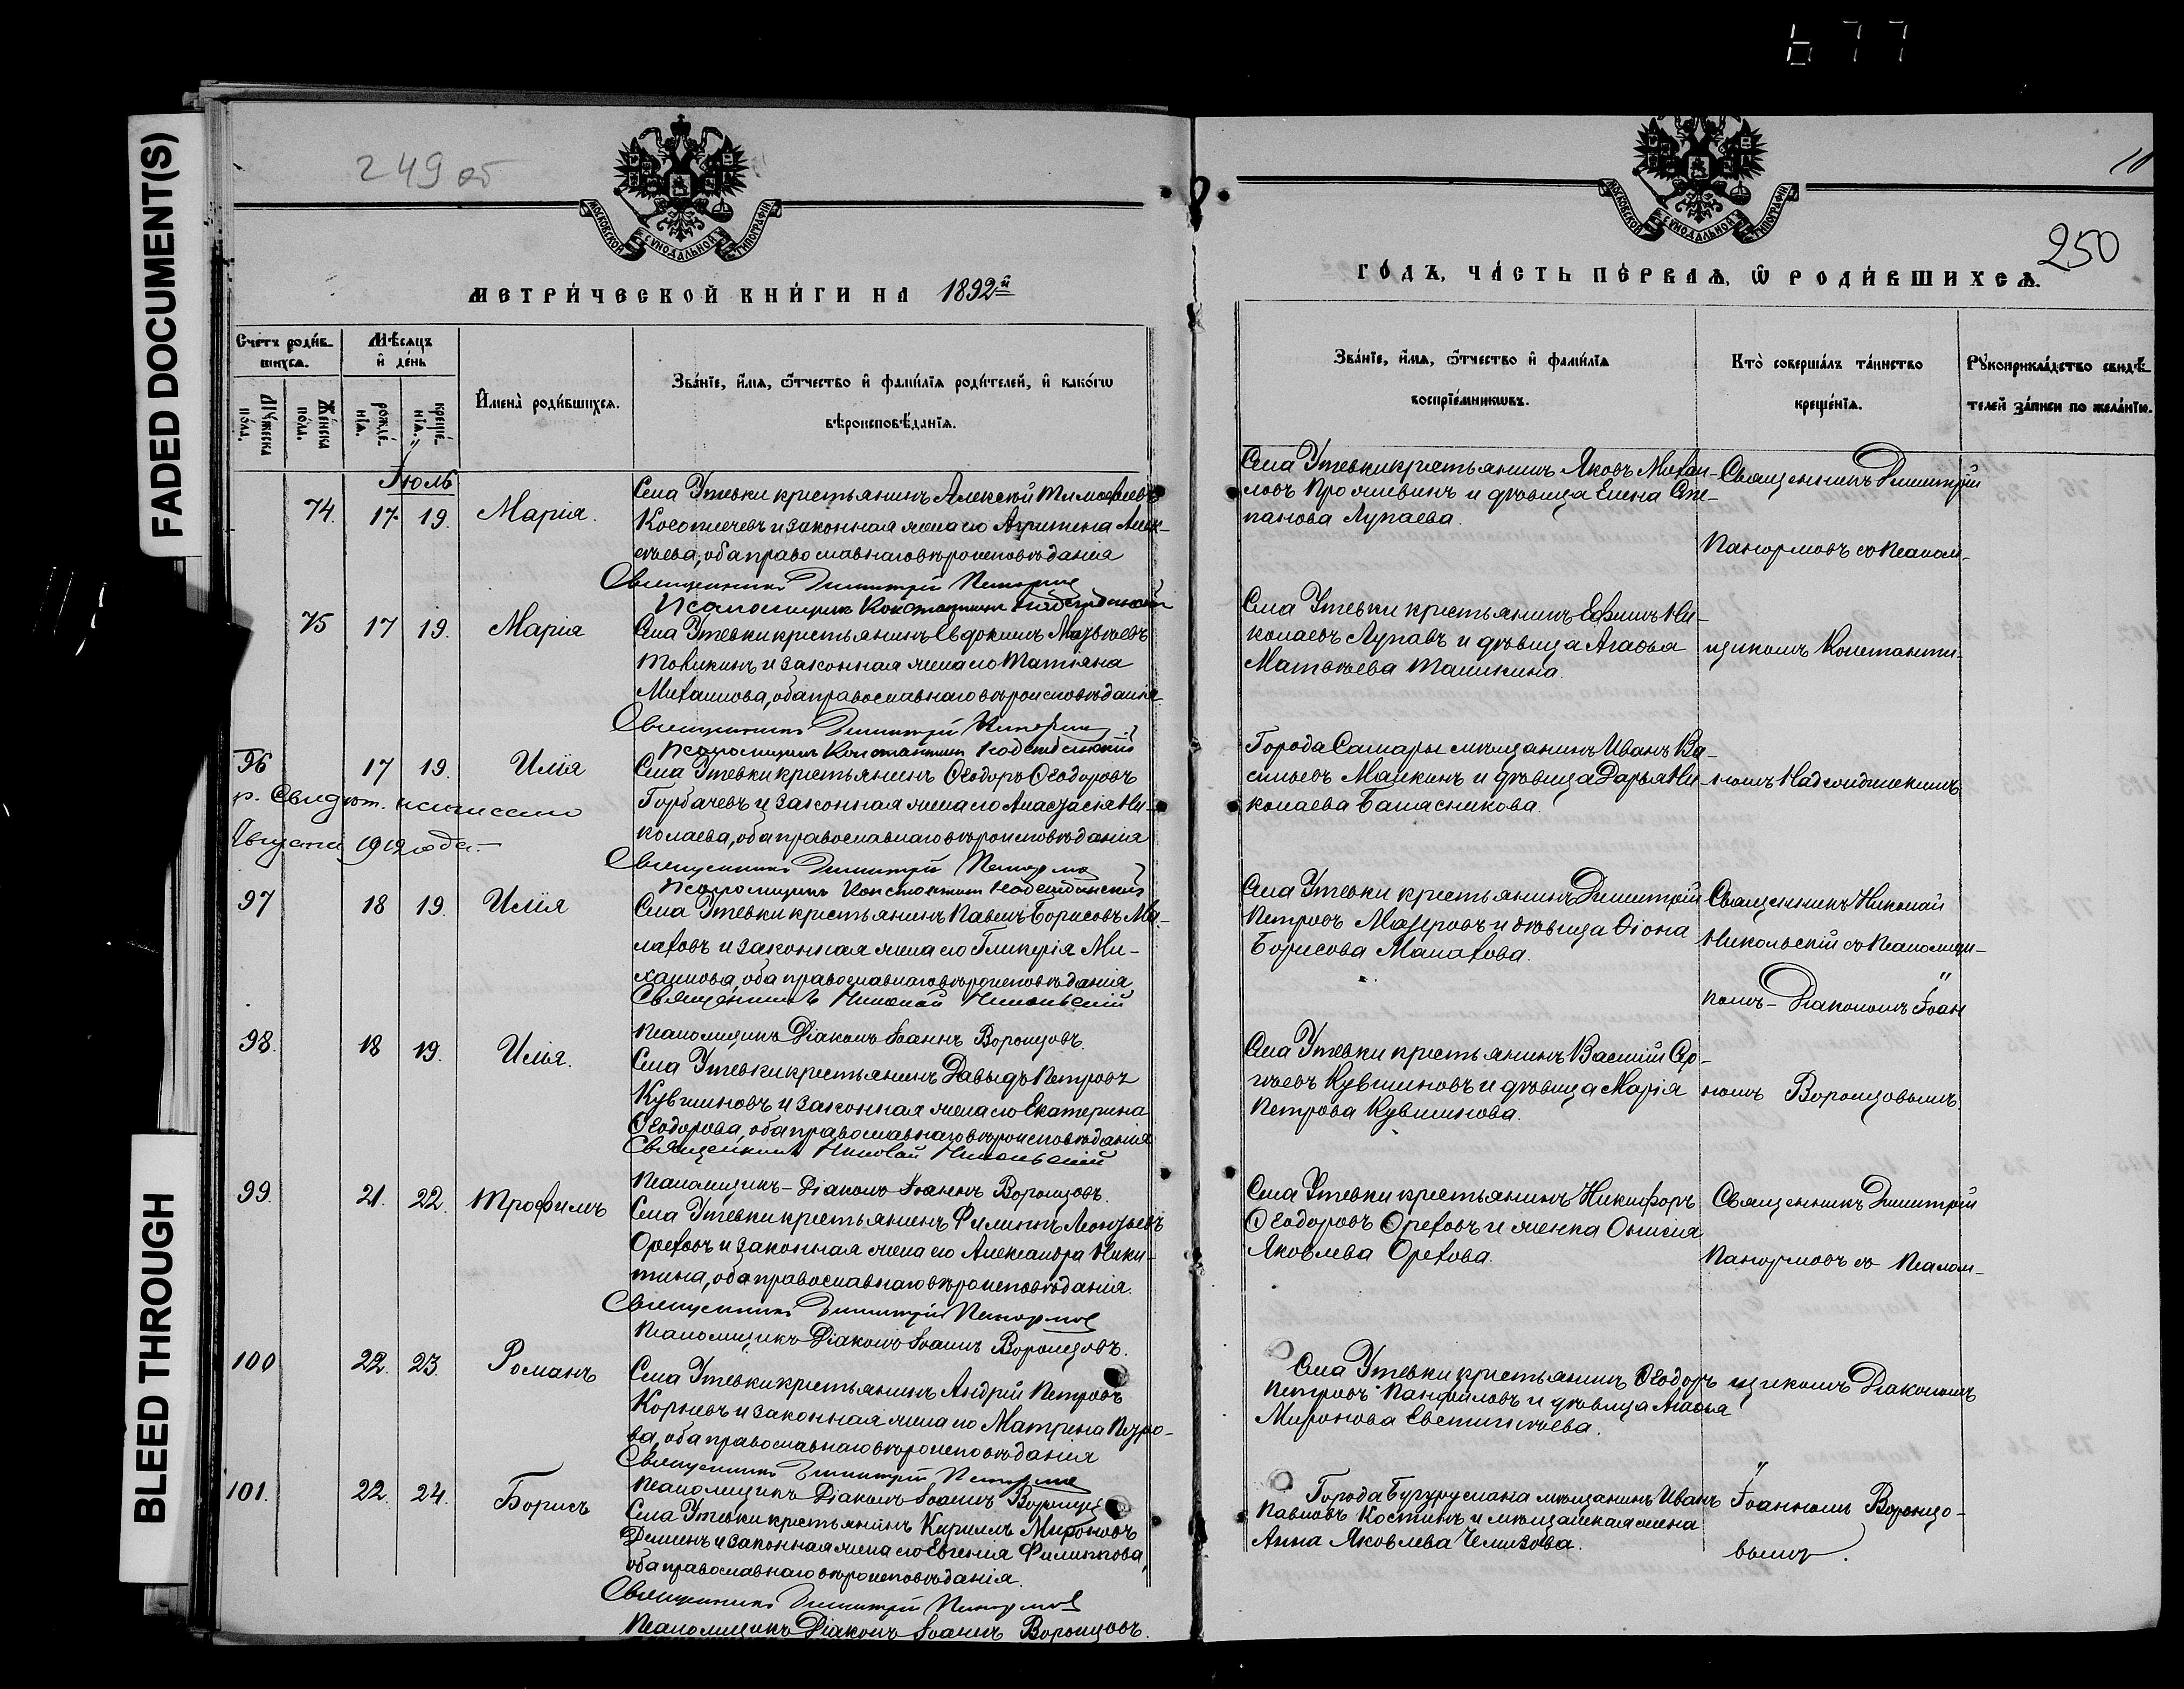 677
FADED DOCUMENT(S)
BLEED THROUGH
249 об
МОСКОВСКОЙ СУНОДАЛЬНОЙ ТИПОГРАФІИ
МЕТРИЧЕСКОЙ КНИГИ НА 1892й
Счетъ родившихся.
Мѣсяцъ и день
Мужеска пола.
Женска пола.
рожденія.
крещенія.
Имена родившихся.
Званіе, имя, отчество и фамилія родителей, и какогω
вѣроисповѣданія.
Іюль
74. 17. 19. Марія.
Села Утевки крестьянинъ Алексѣй Тимофеевъ
Косоплечевъ и законная жена его Агриппина Алек-
сѣева, оба православнаго вѣроисповѣданія
Священникъ Димитрій Панормовъ
Псаломщикъ Константинъ Надеждинскій
75 17 19. Марія
Села Утевки крестьянинъ Евдокимъ Матвѣевъ
и законная жена его Татіана
Михаилова, оба православнаго вѣроисповѣданія
Священникъ Димитрій Панормовъ
Псаломщикъ Константинъ Надеждинскій
96 17 19. Илія
Села Утевки крестьянинъ Ѳеодоръ Ѳеодоровъ
Горбачевъ и законная жена его Анастасія Ни-
колаева, оба православнаго вѣроисповѣданія
Августа 1912 года
Священникъ Димитрій Панормовъ
Псаломщикъ Константинъ Надеждинскій
97 18 19. Илія
Села Утевки крестьянинъ Павелъ Борисовъ Ма-
лаховъ и законная жена его Гликерія Ми-
хаилова, оба православнаго вѣроисповѣданія
Священникъ Николай Никольскій
Псаломщикъ Діаконъ Іоаннъ Воронцовъ.
98. 18 19. Илія.
Села Утевки крестьянинъ Давыдъ Петровъ
Кувшиновъ и законная жена его Екатерина
Ѳеодорова, оба православнаго вѣроисповѣданія
Священникъ Николай Никольскій
Псаломщикъ-Діаконъ Іоаннъ Воронцовъ.
99. 21. 22. Трофимъ
Села Утевки крестьянинъ Филиппъ Леонтьевъ
Ореховъ и законная жена его Александра Ники-
тина, оба православнаго вѣроисповѣданія.
Священникъ Димитрій Панормовъ
Псаломщикъ Діаконъ Іоаннъ Воронцовъ.
100 22. 23. Романъ
Села Утевки крестьянинъ Андрей Петровъ
Корневъ и законная жена его Матрена Петро-
ва, оба православнаго вѣроисповѣданія
Священникъ Димитрій Панормовъ
Псаломщикъ Діаконъ Іоаннъ Воронцовъ
101. 22. 24. Борисъ
Села Утевки крестьянинъ Кириллъ Мироновъ
Деминъ и законная жена его Евгенія Филиппова,
оба православнаго вѣроисповѣданія.
Священникъ Димитрій Панормовъ
Псаломщикъ Діаконъ Іоаннъ Воронцовъ.
МОСКОВСКОЙ СУНОДАЛЬНОЙ ТИПОГРАФІИ
250
ГОДЪ, ЧАСТЬ ПЕРВАЯ, Ѡ РОДИВШИХСЯ.
Званіе, имя, отчество и фамилія
воспріемниковъ.
Кто совершалъ таинство
крещенія.
Рукоприкладство свидѣ-
телей записи по желанію.
Села Утевки крестьянинъ Яковъ Михаи-
ловъ и дѣвица Елена Сте-
панова Лупаева.
Священникъ Димитрій
Панормовъ съ Псалом-
Села Утевки крестьянинъ Ефимъ Ни-
колаевъ Лупаевъ и дѣвица Агаѳья
Матвѣева
щикомъ Константи-
Города Самары мѣщанинъ Иванъ Ва-
сильевъ Малкинъ и дѣвица Дарья Ни-
колаева Баласникова.
номъ Надеждинскимъ
Села Утевки крестьянинъ Димитрій
Петровъ Мазуровъ и дѣвица Ѳіона
Борисова Малахова.
Священникъ Николай
Никольскій съ Псаломщи-
комъ-Діакономъ Іоан
Села Утевки крестьянинъ Василій Сер-
гѣевъ Кувшиновъ и дѣвица Марія
Петрова Кувшинова.
номъ Воронцовымъ.
Села Утевки крестьянинъ Никифоръ
Ѳеодоровъ Ореховъ и женка Онисія
Яковлева Орехова.
Священникъ Димитрій
Панормовъ съ Псалом-
Села Утевки крестьянинъ Ѳеодоръ
Петровъ Панфиловъ и дѣвица Агаѳья
Миронова Евстигнѣева.
щикомъ Діакономъ
Города Бугуруслана мѣщанинъ Иванъ
Павловъ Костинъ и мѣщанская жена
Анна Яковлева Чемизова.
Іоанномъ Воронцо-
вымъ.